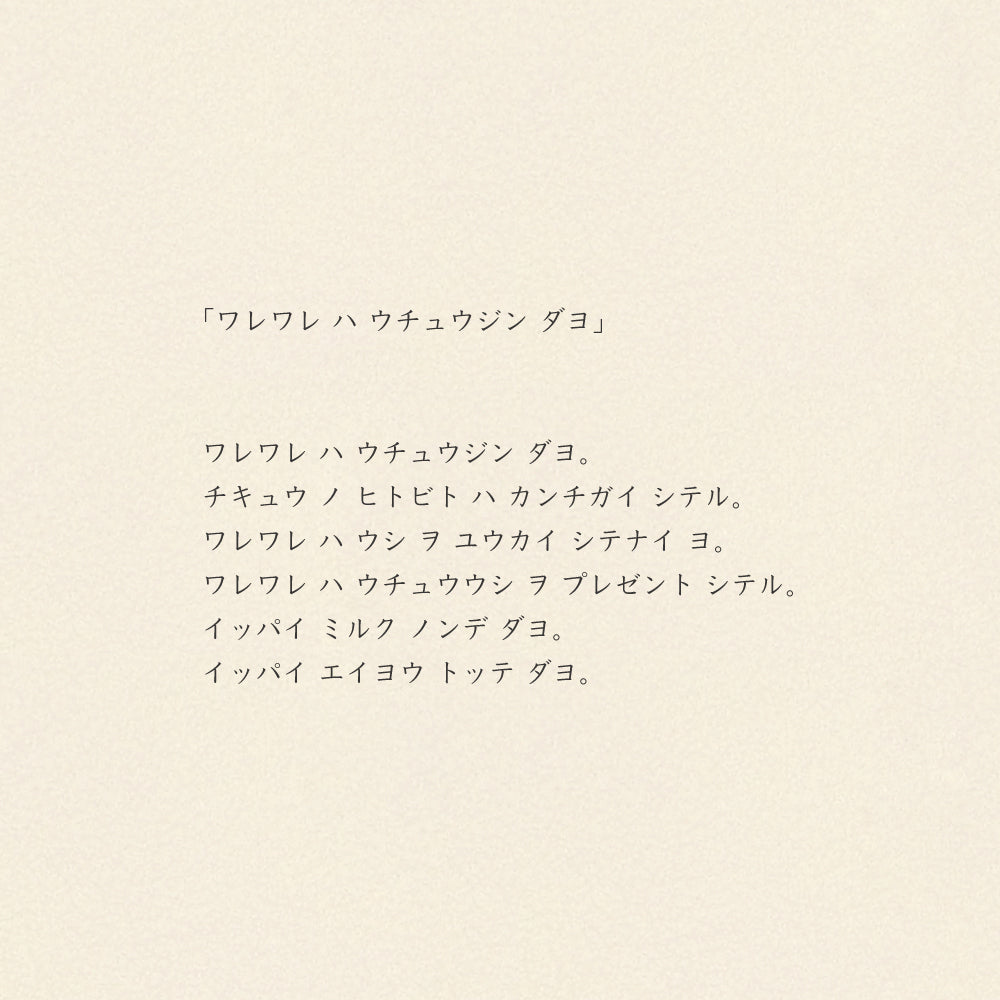 「ワレワレ ハ ウチュウジン ダヨ」
ワレワレ ハ ウチュウジン ダヨ。
チキュウ ノ ヒトビト ハ カンチガイ シテル。
ワレワレ ハ ウシ ヲ ユウカイ シテナイ ヨ。
ワレワレ ハ ウチュウウシ ヲ プレゼント シテル。
イッパイ ミルク ノンデ ダヨ。
イッパイ エイヨウ トッテ ダヨ。